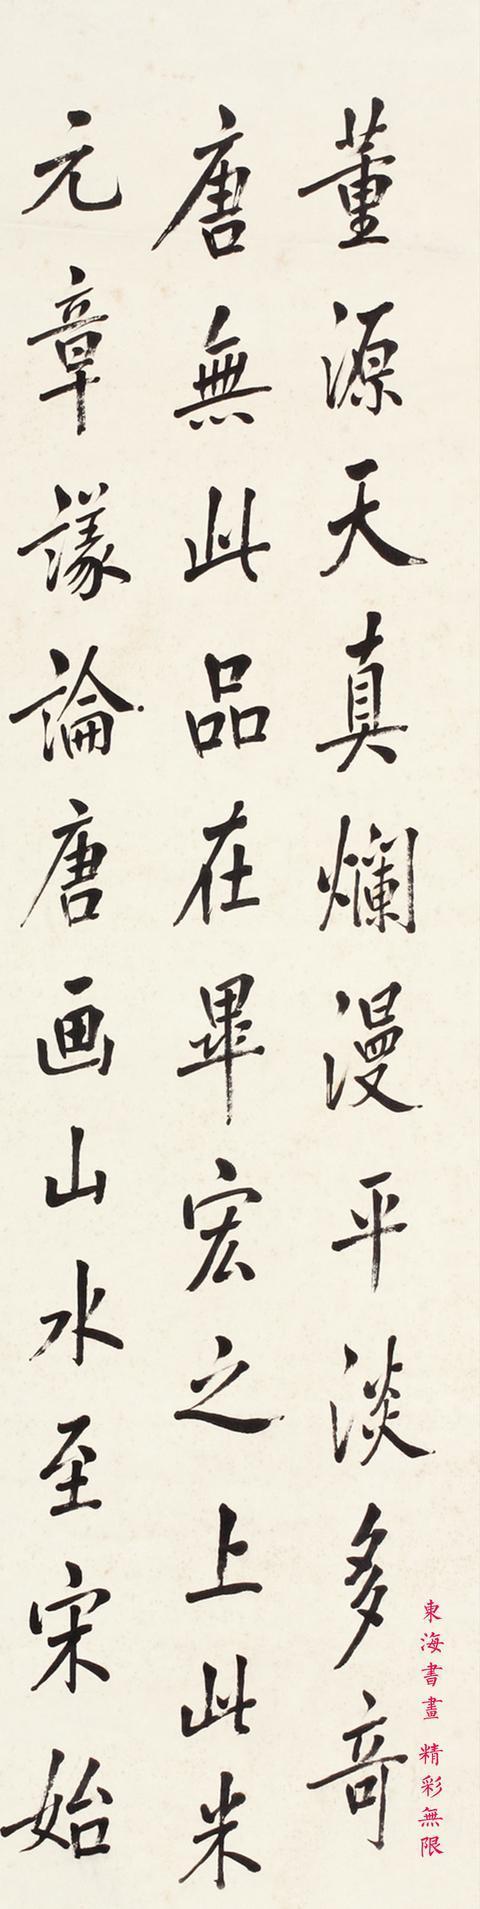 董源天真爛漫平淡多奇
唐無此品在畢宏之上此米
元章議論唐画山水至宋始
東海書畫 精彩無限